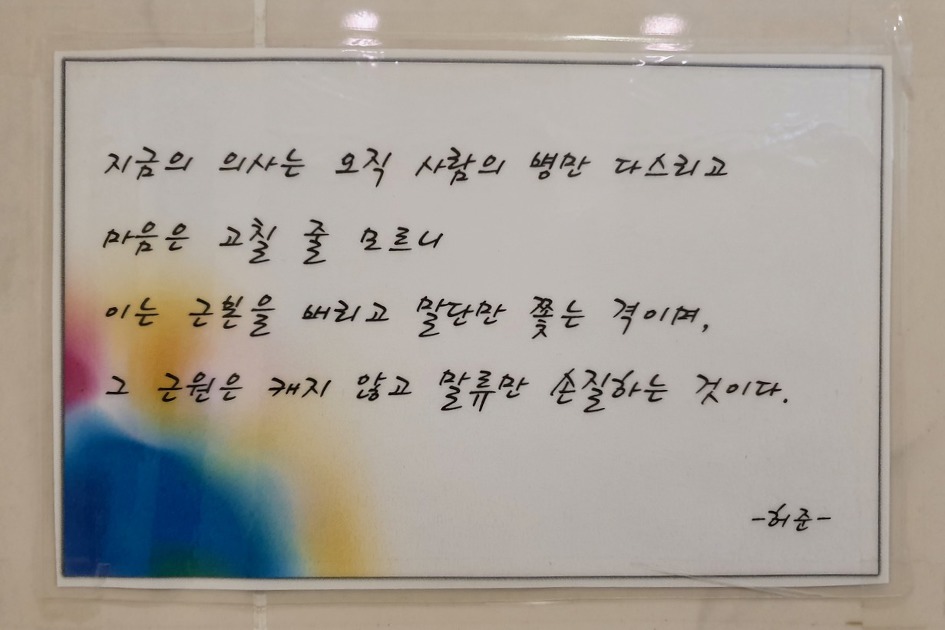 지금의 의사는 오직 사람의 병만 다스리고
마음은 고칠 줄 모르니
이는 근본을 버리고 말단만 쫓는 격이며,
그 근원은 캐지 않고 말류만 손질하는 것이다.
-허준-